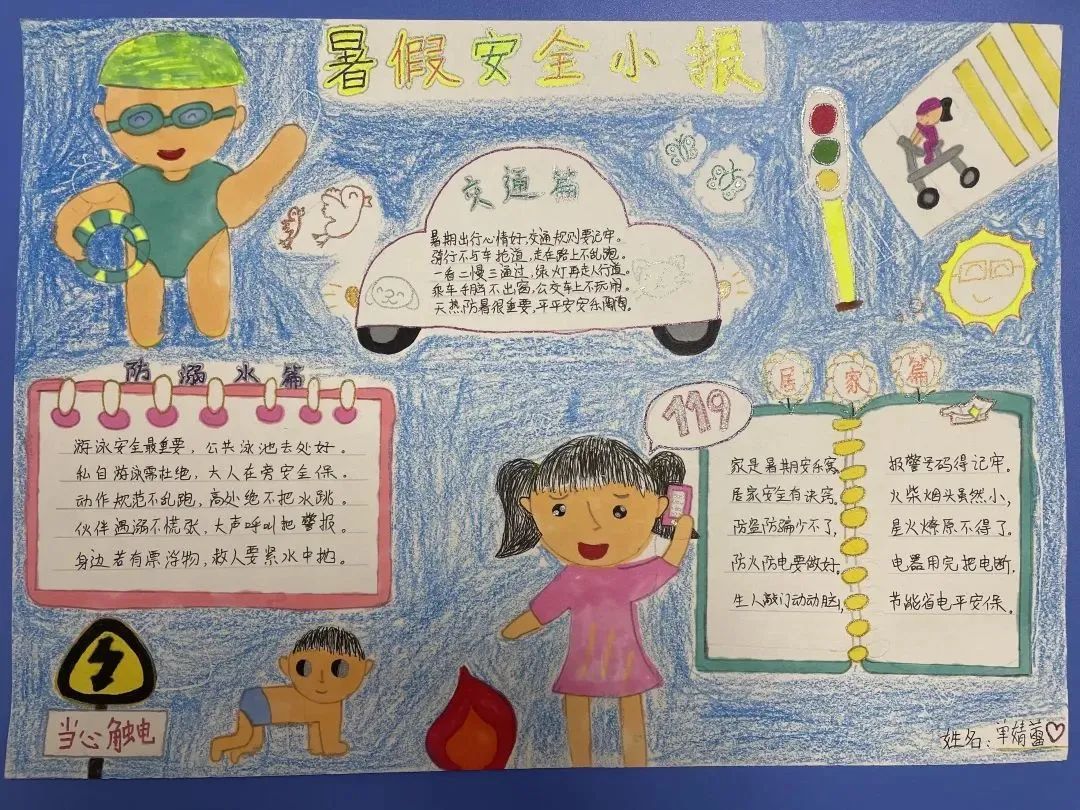 暑假安全小报
交通篇
暑期出行心情好,交通规则要记牢。
骑行不与车抢道,走在路上不乱跑。
一看二慢三通过,绿灯再走人行道。
乘车手脚不出窗,公交车上不玩闹。
天热防暑很重要,平平安安乐陶陶。
防溺水篇
游泳安全最重要,公共泳池去处好。
私自游泳需杜绝,大人在旁安全保。
动作规范不乱跑,高处绝不把水跳。
伙伴遇溺不慌张,大声呼叫把警报。
身边若有漂浮物,救人要紧水中抛。
119
居家篇
家是暑期安乐窝,
居家安全有诀窍。
防盗防骗少不了,
防火防电要做好。
生人敲门动动脑,
报警号码得记牢。
火柴烟头虽然小,
星火燎原不得了。
电器用完把电断,
节能省电平安保。
当心触电
姓名:单婧